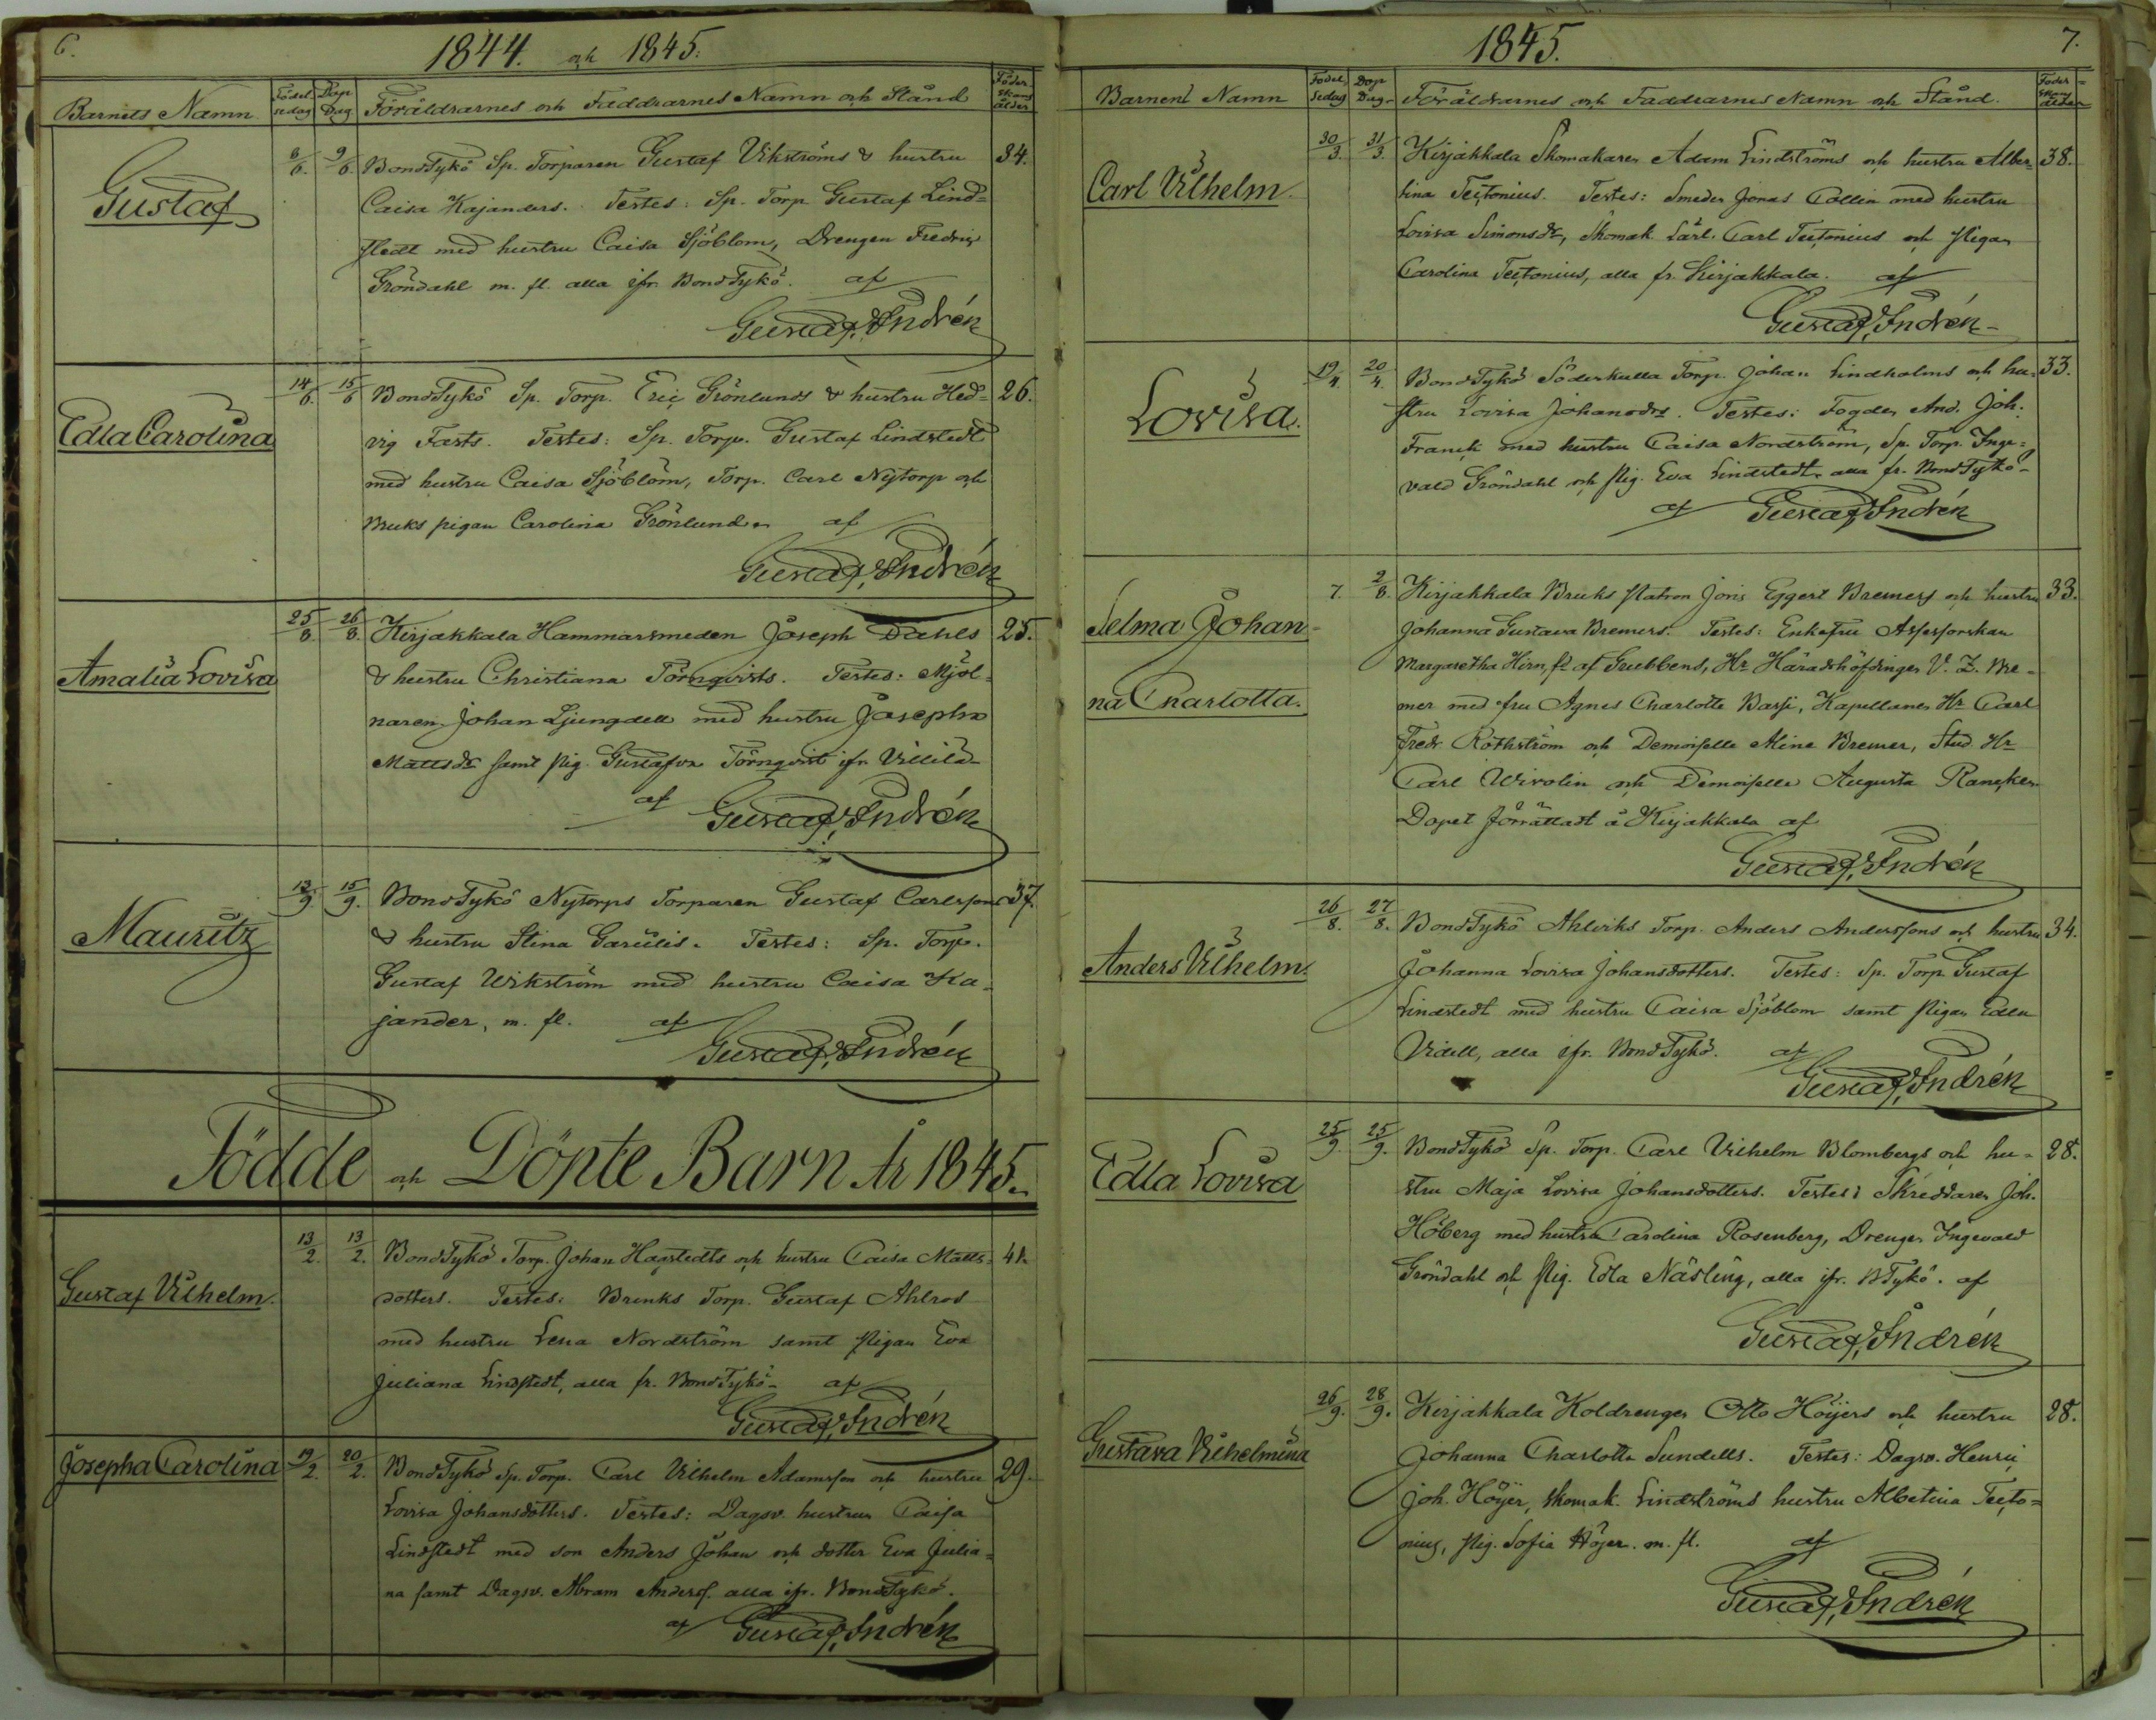 6.
1844. och 1845.
Barnets Namn Födelsedag Dop Dag Föräldrarnes och Faddrarnes Namn och Stånd Föderskans ålder
Gustaf
8/6. 9/6 BondTykö Sp. Torparen Gustaf Vikströms & hustru 34.
Caisa Kajanders. Testes: Sp. Torp Gustaf Lind=
stedt med hustru Caisa Sjöblom, Drengen Fredric
Gröndahl m. fl. alla ifr. BondTykö. af
Gustaf Andrén
Edla Carolina
14/6. 15/6 BondTykö Sp. Torp. Eric Grönlunds & hustru Hed= 26.
vig Fasts. Testes: Sp. Torp. Gustaf Lindstedt
med hustru Caisa Sjöblom, Torp. Carl Nytorp och
Bruks pigan Carolina Grönlund. af
Gustaf Andrén
Amalia Lovisa
25/8. 26/8. Kirjakkala Hammarsmeden Joseph Dahls 25.
& hustru Christiana Törnqvists. Testes: Mjöl=
naren Johan Ljungdell med hustru Josepha
Mattsdr samt pig. Gustafva Törnqvist ifr. Villilä
af Gustaf Andrén
Mauritz
13/9. 15/9. BondTykö Nytorps Torparen Gustaf Carlssons 37.
& hustru Stina Garulis. Testes: Sp. Torp.
Gustaf Wikström med hustru Caisa Ka=
jander, m. fl. af
Gustaf Andrén
Födde och Döpte Barn År 1845.
Gustaf Vilhelm.
13/2. 13/2. BondTykö Torp. Johan Hagstedts och hustru Caisa Matts= 41.
dotters. Testes: Brinks Torp. Gustaf Ahlrod
med hustru Lena Nordström samt pigan Eva
Juliana Lindstedt, alla fr. BondTykö. af
Gustaf Andrén
Josepha Carolina
19/2. 20/2. BondTykö Sp. Torp. Carl Vilhelm Adamsson och hustru 29.
Lovisa Johansdotters. Testes: Dagsv. hustrun Caisa
Lindstedt med son Anders Johan och dotter Eva Julia=
na samt Dagsv. Abram Anderss. alla ifr. BondTykö.
af Gustaf Andrén
1845.
7.
Barnens Namn Födelsedag Dop Dag. Föräldrarnes och Faddrarnes Namn och Stånd. Föderskans ålder
Carl Vilhelm.
30/3. 31/3. Kirjakkala Skomakaren Adam Lindströms och hustru Alber= 38.
tina Tectonius. Testes: Smeden Jonas Collin med hustru
Lovisa Simonsdr, Skomak Lärl. Carl Tectonius och Pigan
Carolina Tectonius, alla fr. Kirjakkala. af
Gustaf Andrén
Lovisa.
19/4. 20/4. BondTykö Söderkulla Torp. Johan Lindholms och hu= 33.
stru Lovisa Johansdrs. Testes: Fogden And. Joh.
Franck med hustru Caisa Nordström, Sp. Torp. Inge=
vald Gröndahl och pig. Eva Lindstedt, alla fr. BondTykö
af Gustaf Andrén
Selma Johan=
na Charlotta.
7. 2/8. Kirjakkala Bruks Patron Joris Eggert Bremers och hustru 33.
Johanna Gustava Bremers. Testes: Enkefru Assessorskan
Margaretha Hirn, fd. af Grubbens, Hr Häradshöfdingen V. Z. Bre=
mer med fru Agnes Charlotte Barse, Kapellanen Hr Carl
Fredr. Rothström och Demoiselle Mina Bremer, Stud. Hr
Carl Wirolin och Demoiselle Augusta Rancken
Dopet förrättadt å Kirjakkala af
Gustaf Andrén
Anders Vilhelm.
26/8. 27/8. BondTykö Ahlviks Torp. Anders Anderssons och hustru 34.
Johanna Lovisa Johansdotters. Testes: Sp. Torp. Gustaf
Lindstedt med hustru Caisa Sjöblom samt Pigan Edla
Videll, alla ifr. BondTykö. af
Gustaf Andrén
Edla Lovisa
25/9. 25/9. BondTykö Sp. Torp. Carl Vilhelm Blombergs och hu= 28.
stru Maja Lovisa Johansdotters. Testes: Skreddaren Joh.
Höberg med hustru Carolina Rosenberg, Drengen Ingevald
Gröndahl och Pig. Edla Näsling, alla ifr. BTykö. af
Gustaf Andrén
Gustava Vilhelmina
26/9. 28/9. Kirjakkala Koldrengen Otto Höijers och hustru 28.
Johanna Charlotta Sundells. Testes: Dagsv. Henric
Joh. Höijer, skomak. Lindströms hustru Albertina Tecto=
nius, Pig. Sofia Höjer. m. fl. af
Gustaf Andrén